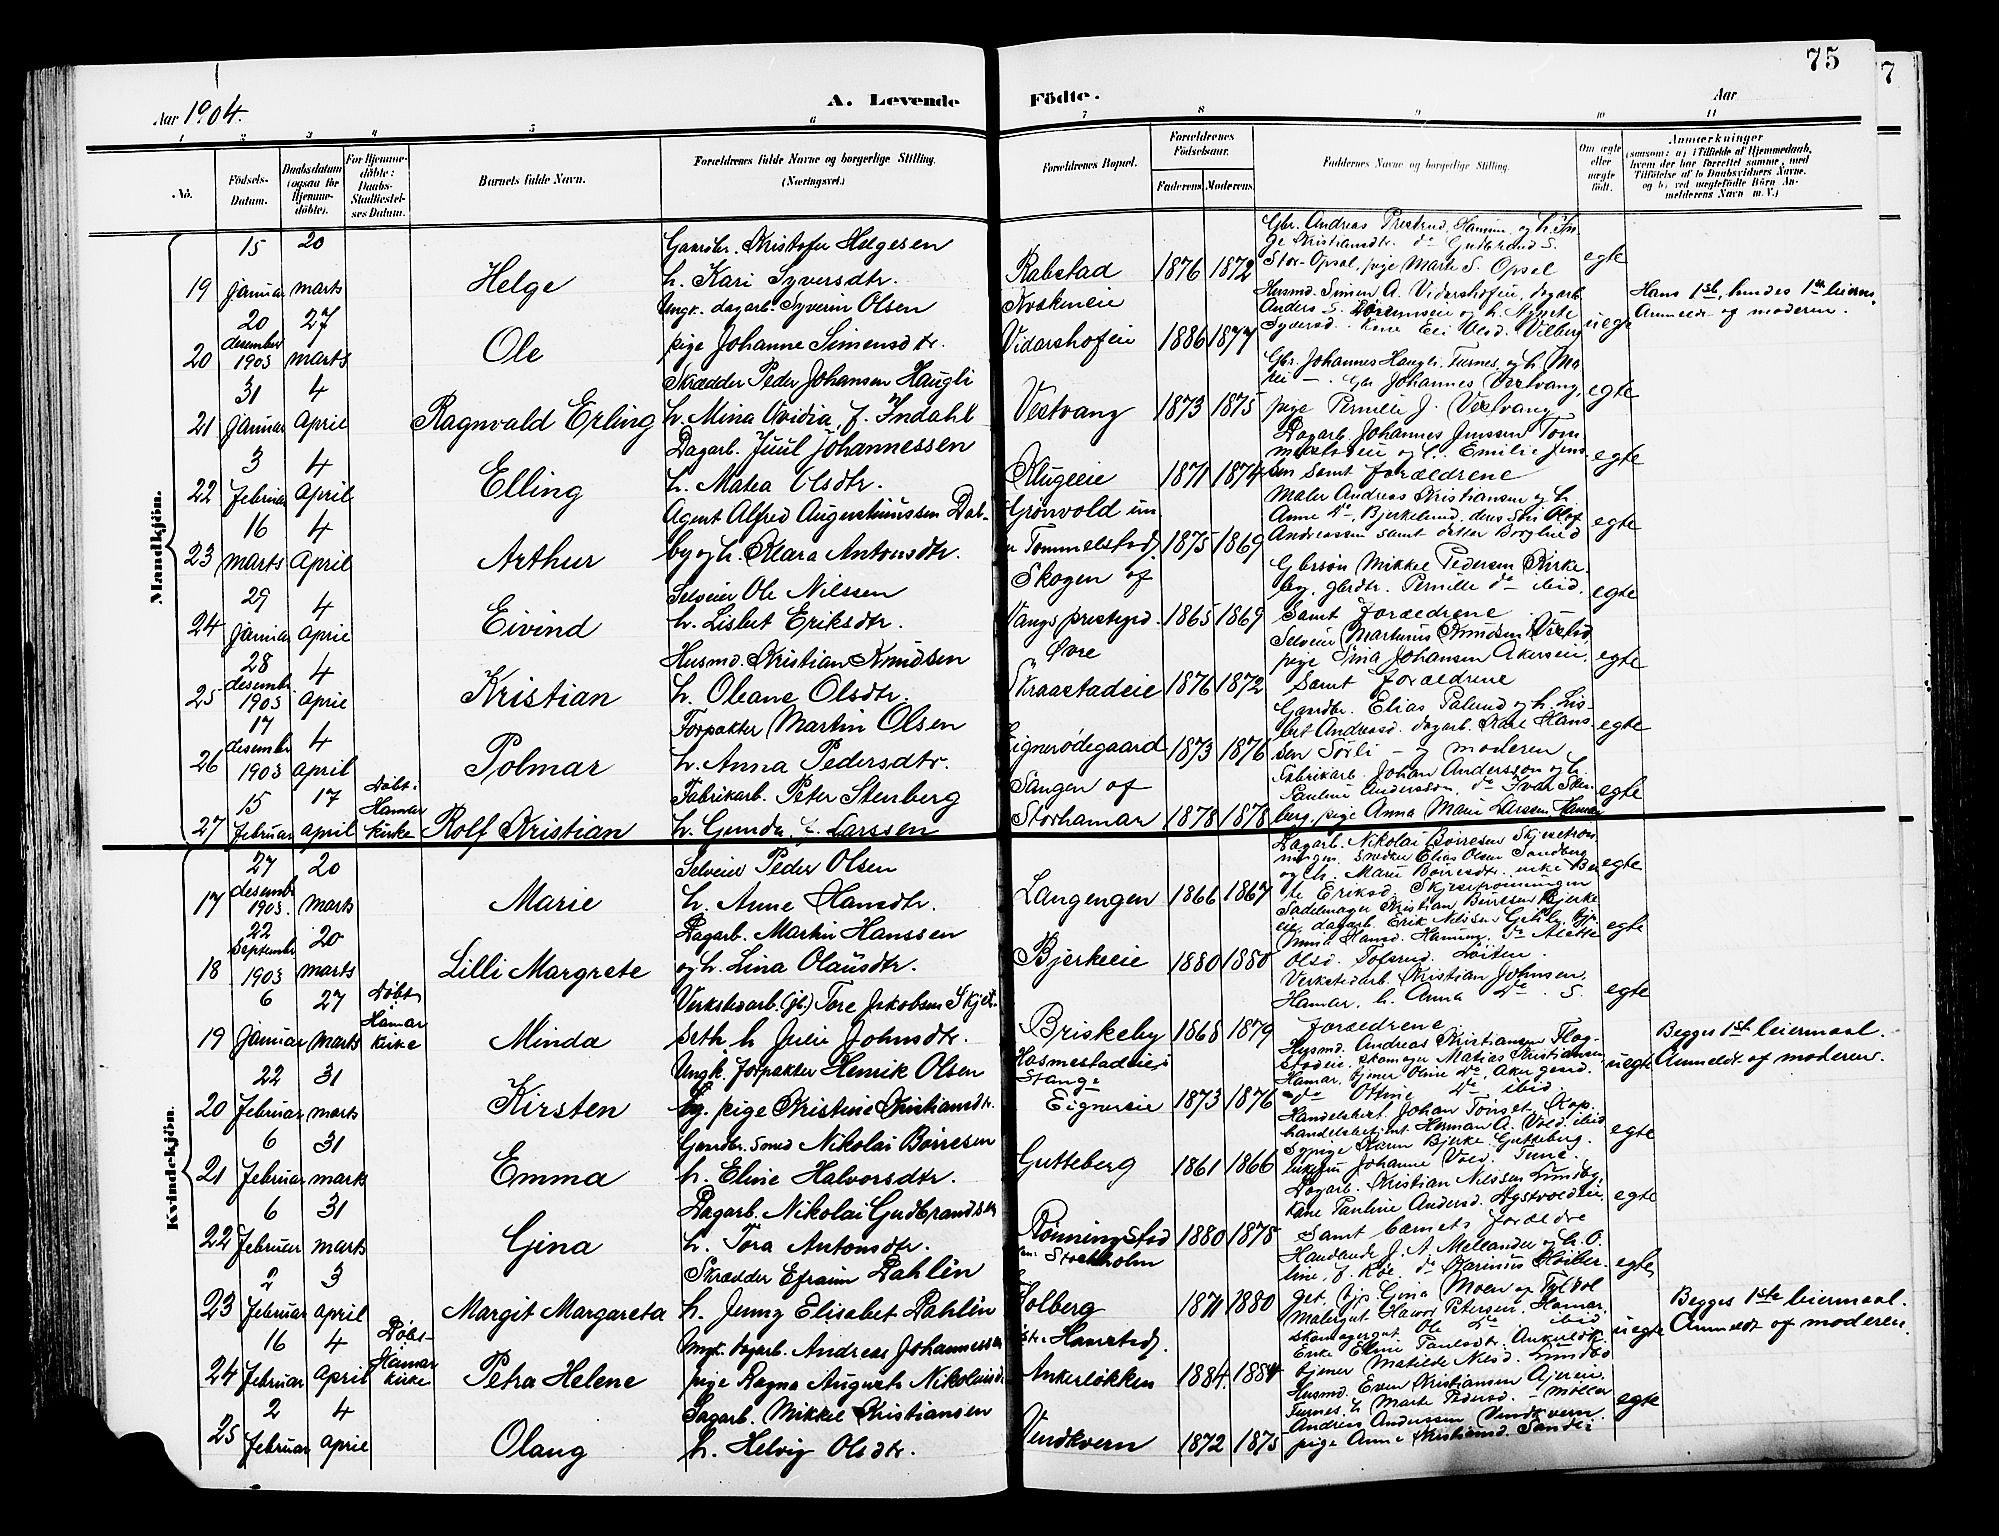 75
7
Aar 1904.
A. Levende Födte.
Aar
1 2 3 4 5 6 7 8 9 10 11
No.
Födsels-Datum.
Daabsdatum (ogsaa for Hjemmedöbte).
For Hjemmedöbte: Daabs-Stadfæstelses Datum.
Barnets fulde Navn.
Forældrenes fulde Navne og borgerlige Stilling. (Næringsvei.)
Forældrenes Bopæl.
Forældrenes Födselsaar.
Faderens
Moderens
Faddernes Navne og borgerlige Stilling.
Om ægte eller uægte födt.
Anmærkninger
Mandkjön.
19 15 Januar 20 marts Helge
Gaardbr. Kristofer Helgesen
h. Kari Syversdtr.
Rabstad 1876 1872
Gbr. Andreas Prestrud
Stor-Opsal, pige Marte S. Opsal
egte
20 20 desember 1903 27 marts Ole
Ungk. dagarb. Syverin Olsen
pige Johanne Simensdtr.
Vidarshofeie 1886 1877
Husmd. Simen A. Vidarshofeie, dagarb.
uegte
Hans 1ste, hendes 1ste leierm.
Anmeldt af moderen.
21 31 Januar 4 April Ragnvald Erling
Skrædder Peder Johansen Haugli
h. Mina Ovidia, f. Indahl
Vestvang 1873 1875
Gbr. Johannes Haugli, Furnes, og h. Ma-
Gbr. Johannes Vestvang,
pige Pernille J. Vestvang
egte
22 3 Februar 4 April Elling
Dagarb. Juul Johannessen
h. Matea Olsdtr.
Klugeeie 1871 1874
Dagarb. Johannes Jenssen Tom-
melstadeie og h. Emilie Jens-
sen samt forældrene
egte
23 16 marts 4 April Arthur
Agent Alfred Augustinussen Dal-
by og h. Klara Antonsdtr.
Grønvold un-
der Tommelstad, 1875 1869
Maler Andreas Kristiansen og h.
Anne Do, Bjerkelund, deres søn Olaf
Andreassen samt datter Borghild
egte
24 29 Januar 4 Aprie Eivind
Selveier Ole Nilssen
h. Lisbet Eriksdtr.
Skogen af
Vangs prestegrd. 1865 1869
Gbrsøn Mikkel Pedersen Kirke-
by, gbrdtr. Pernille do ibid.
samt forældrene
egte
25 28 desembr. 1903 4 Aprie Kristian
Husmd. Kristian Knudsen
h. Oleane Olsdtr.
Øvre
Skraastadeie 1876 1872
Selveier Martinus Knudsen
pige Tina Johansen Akerseie,
samt forældrene
egte
26 17 desembr 1903 4 April Polmar
Forpakter Martin Olsen
h. Anna Pedersdtr.
Eignerødegaard 1873 1876
Gaardbr. Elias Palerud og h. Lis-
bet Andreasd. dagarb. Kare Hans-
sen Sørli - og moderen
egte
27 15 Februar 17 April Døbt i Hamar kirke Rolf Kristian
Fabrikarb. Peter Stenberg
h. Gunda, f. Larssen
Sangen af
Storhamar 1878 1878
Fabrikarb. Johan Andersson og h.
Pauline Andersson, do Ivar Sten-
berg, pige Anna Marie Larssen, Hamar
egte
Kvindekjön.
17 27 desembr 1903. 20 marts Marie
Selveier Peder Olsen
h. Anne Hansdtr.
Langengen 1866 1867
Dagarb. Nikolai Børresen
snedker Elias Olsen Sandberg
og h. Marie Børresdtr. enke Be-
te Eriksd.
egte
18 22 September 1903 20 marts Lilli Margrete
Dagarb. Martin Hanssen
og h. Lina Olausdtr.
Bjerkeeie 1880 1880
Sadelmager Kristian Børresen Bjerke
eie, dagarb. Erik Nilssen
Olsd. Tolsrud, Løiten.
egte
19 6 Januar 27 marts Døbt Hamar kirke Minda
Verkstedarb. (jb.) Tore Jakobsen Skjet-
h. Julie Johnsdtr.
Briskeby 1868 1879
Verkstedarb. Kristian Johnsen,
Hamar, h. Anna Do. S.
forældrene
egte
20 22 Februar 31 marts Kirsten
Ungk. forpakter Henrik Olsen
og pige Kristine Kristiansdtr.
Hasmestadeie,
Stange
Eignereie 1873 1876
Husmd. Andreas Kristiansen Flag-
stadeie, skomager Matias Kristiansen
Hamar, tjener Oline Do, Aker gaard,
do Ottine Do ibid.
uegte
Begges 1ste leiermaal.
Anmeldt af moderen.
21 6 Februar 31 marts Emma
Gaardbr. smed Nikolai Børresen
h. Eline Halvorsdtr.
Gutteberg 1861 1866
Handelsbet. Johan Tønset, Kap,
handelsbetjent Herman A. Vold, ibid
Sypige Karen Bjerke, Gutteberg.
Johanne Vold. Tune.
egte
22 6 Februar 31 marts Gina
Dagarb. Nikolai Gudbrandsen
h. Tora Antonsdtr.
Rønningstad 1880 1878
Dagarb. Kristian Nilssen Lundby,
kone Pauline Andersd.
samt barnets forældre
egte
23 2 Februar 3 April Margit Margareta
Skrædder Efraim Dahlén
h. Jenny Elisabet Dahlén
Stockholm
Holberg 1871 1880
Handlande J. A. Mellander og h. O-
line, f. Køe, do Marinus Høiber-
get, tjp. Gina Moen
egte
24 16 Februar 4 April Døbt Hamar kirke Petra Helene
Ungk. dagarb. Andreas Johannessen
pige Ragna Augusta Nikolaisd.
Ankerløkken 1884. 1884
Malergut Halvor Petersen, Hamar,
skomagergut Ole Do ibid
Enke Eline Paulsdtr. Ankerløk-
tjener Matilde Nilsd. Lundbo
uegte
Begges 1ste leiermaal.
Anmeldt af moderen.
25 2 Februar 4 April Olaug
Dagarb. Mikkel Kristiansen
h. Helvig Olsdtr.
Vendkvern 1872 1875
Husmd. Even Kristiansen Ajereie,
Furnes, h. Marte Pedersd. - møller
Andreas Anderssen Vendkvern.
pige Anne Kristiansd. Sandei
egte